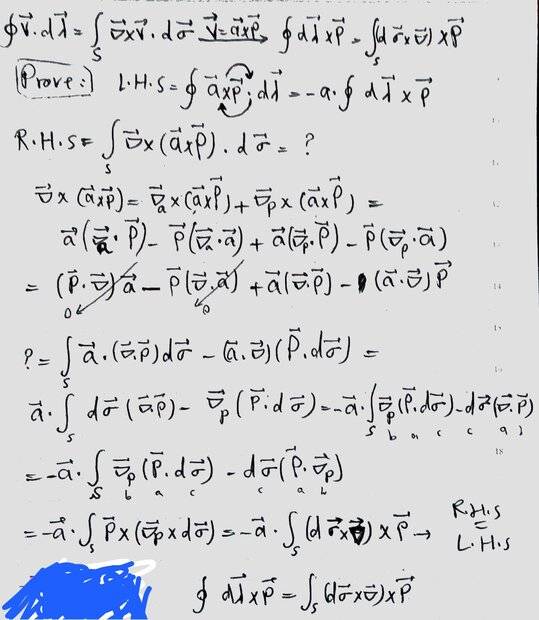 ∮V⃗·dλ⃗ = ∫_S ∇⃗×V⃗·dσ⃗  V⃗=a⃗×P⃗ →  ∮dλ⃗×P⃗ = ∫_S (dσ⃗×∇⃗)×P⃗
Prove:  L.H.S = ∮ a⃗×P⃗·dλ⃗ = -a·∮ dλ⃗×P⃗
R.H.S = ∫_S ∇⃗×(a⃗×P⃗)·dσ⃗ = ?
∇⃗×(a⃗×P⃗) = ∇⃗_a×(a⃗×P⃗) + ∇⃗_P×(a⃗×P⃗) =
a⃗(∇⃗_a·P⃗) - P⃗(∇⃗_a·a⃗) + a⃗(∇⃗_P·P⃗) - P⃗(∇⃗_P·a⃗)
= (P⃗·∇⃗)a⃗ - P⃗(∇⃗·a⃗) + a⃗(∇⃗·P⃗) - (a⃗·∇⃗)P⃗
0 0
? = ∫_S a⃗·(∇⃗·P⃗)dσ⃗ - (a⃗·∇⃗)(P⃗·dσ⃗) =
a⃗·∫_S dσ⃗(∇⃗·P⃗) - ∇⃗_P(P⃗·dσ⃗) = -a⃗·∫_S ∇⃗_P(P⃗·dσ⃗) - dσ⃗(∇⃗·P⃗)
b a c c a b
= -a⃗·∫_S ∇⃗_P(P⃗·dσ⃗) - dσ⃗(P⃗·∇⃗_P)
b a c c a b
= -a⃗·∫_S P⃗×(∇⃗_P×dσ⃗) = -a⃗·∫_S (dσ⃗×∇⃗)×P⃗ → R.H.S = L.H.S
∮ dλ⃗×P⃗ = ∫_S (dσ⃗×∇⃗)×P⃗